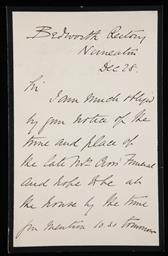 Bedworth Rectory
Nuneaton
Dec 28.
Sir
I am much obliged
by your notice of the
time and place of
the late Mrs Cross' Funeral
and hope to be at
the house by the time
you mention 10.20 tomorrow